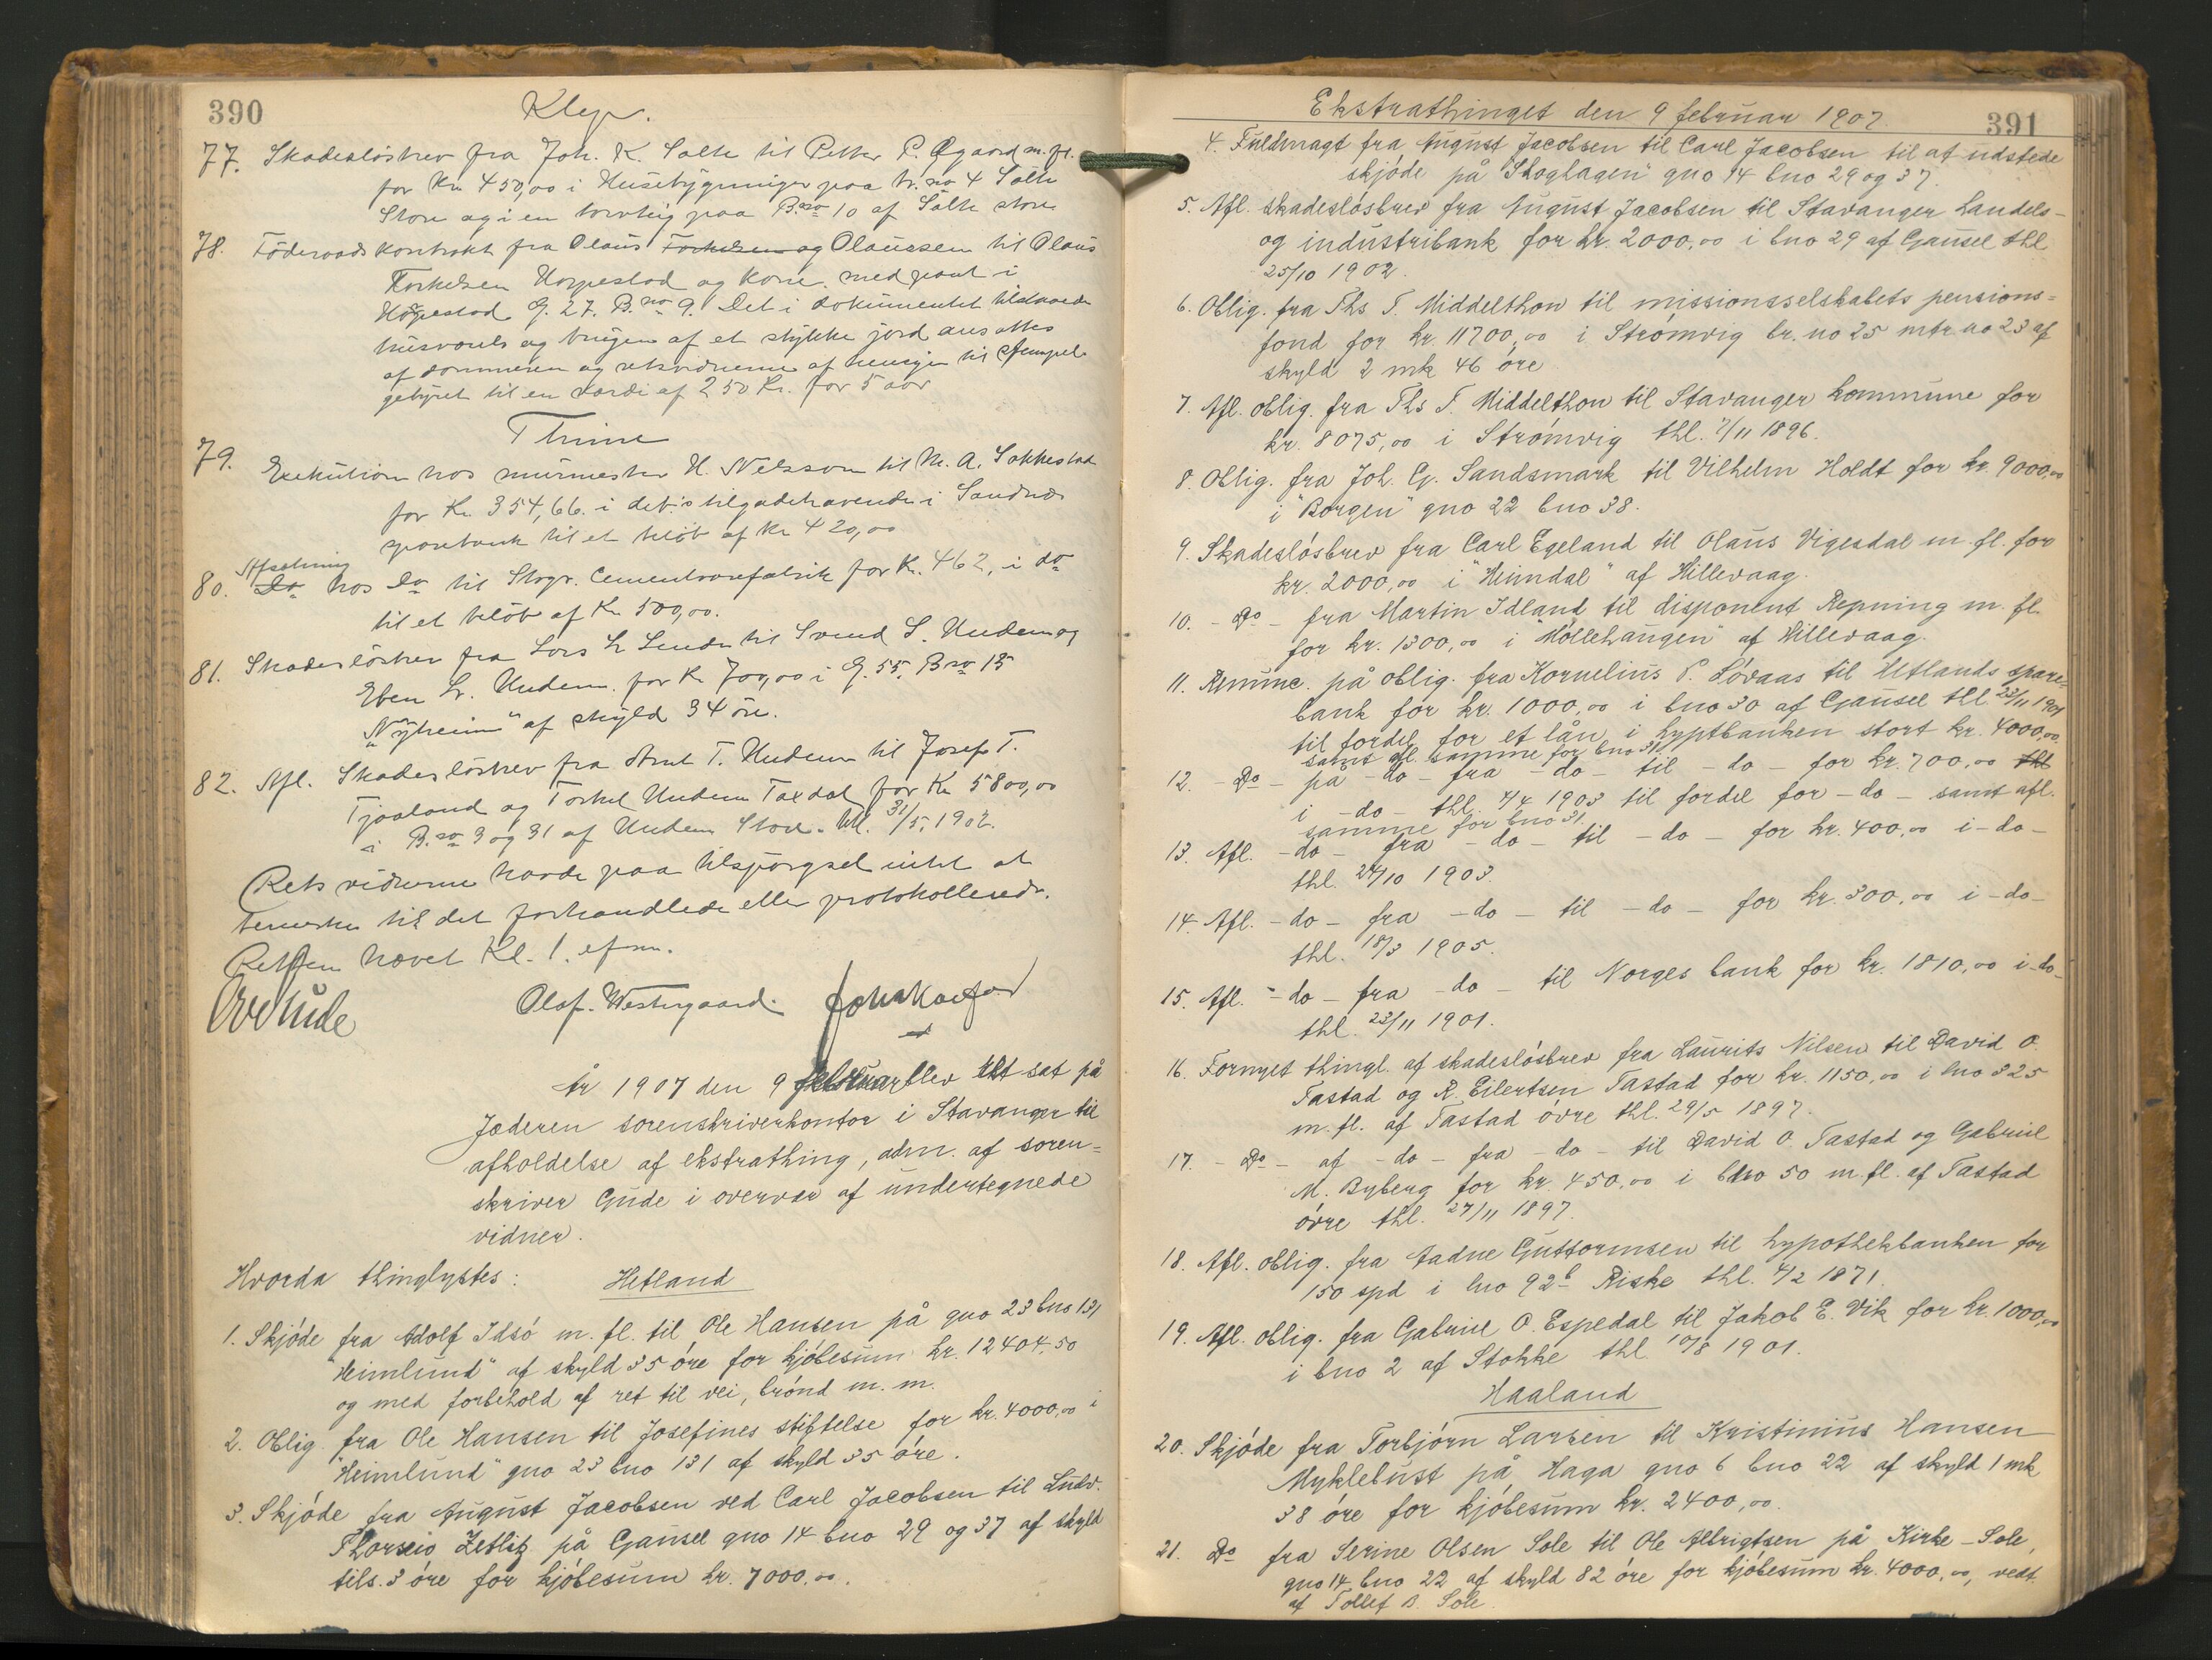 390
Klep.
77. Skadesløsbrev fra Joh. K. Salte til Petter P. Øgaard m. fl.
for Kr 450,00 i Husebygninger paa br. no 4 Salte
Store og i en torvteig paa B.no 10 af Salte store
78. Föderaadskontrakt fra Olaus Torkelsen og Olaussen til Olaus
Torkelsen Hoppestad og Kone med pant i
Hoppestad G. 27. B.no 9. Det i dokumentet tilstaaede
husværels og brugen af et stykke jord ansattes
af dommeren og retsvidnerne af hensyn til stempel-
gebyret til en værdi af 250 Kr. for 5 aar
Thime
79. Exekution hos murmester H. Nilsson til M. A. Sokkestad
for Kr. 354,66. i det's tilgodehavende i Sandnes
sparebank til et beløb af Kr 420,00
Afsetning
80. Do hos Do til Stvgr. Cementvarefabrik for Kr. 462, i do
til et beløb af Kr 500,00.
81. Skadesløsbrev fra Lars L Lende til Svend S. Undem og
Eben Sr. Undem. for Kr 700,00 i G. 55. B.no 15
"Nyheim" af skyld 34 öre.
82. Afl. Skadesløsbrev fra Amt T. Undem til Josef T.
Tjaaland og Torkel Undem Taxdal for Kr 5800,00
i B.no 3 og 31 af Undem Store. thl. 31/5. 1902.
Retsvidnerne havde paa tilspørgsel intet at
bemerke til det forhandlede eller protokollerede.
Retten hævet Kl. 1. efm.
Ove Gude Olaf. Westergaard.
År 1907 den 9 februar blev ret sat på
Jæderen sorenskriverkontor i Stavanger til
afholdelse af ekstrathing, adm. af soren=
skriver Gude i overvær af undertegnede
vidner.
Hvorda thinglystes: Hetland
1. Skjóde fra Adolf Idsó m. fl. til Ole Hansen på gno 23 bno 131
"Heimlund" af skyld 35 óre for kjóbesum kr. 12404.50
og med forbehold af ret til vei, brónd m. m.
2. Oblig. fra Ole Hansen til Josefines stiftelse for kr. 4000,00 i
"Heimlund" gno 23 bno 131 af skyld 35 óre.
3. Skjóde fra August Jacobsen ved Carl Jacobsen til Ludv.
Zetlitz på Gausel gno 14 bno 29 og 37 af skyld
tils. 3 óre for kjóbesum kr. 7000,00.
Ekstrathinget den 9 februar 1907. 391
4. Fuldmagt fra August Jacobsen til Carl Jacobsen til at udstede
skjóde på "Skoghagen" gno 14 bno 29 og 37.
5. Afl. skadeslósbrev fra August Jacobsen til Stavanger handels-
og industribank for kr. 2000,00 i bno 29 af Gausel thl.
25/10 1902.
6. Oblig. fra Ths T. Middelthon til missionsselskabets pensions=
fond for kr. 11700,00 i Strómvig br. no 25 mtr no 23 af
skyld 2 mk 46 óre
7. Afl. oblig. fra Ths T. Middelthon til Stavanger kommune for
kr. 8075,00 i Strómvig thl. 7/11 1896.
8. Oblig. fra Joh. G. Sandsmark til Vilhelm Holdt for kr. 9000,00
i "Borgen" gno 22 bno 38.
9. Skadeslósbrev fra Carl Egeland til Olaus Vigesdal m. fl. for
kr. 2000,00 i "Heimdal" af Hillevaag.
10. - Do - fra Martin Idland til disponent Repning m. fl.
for kr. 1300,00 i "Möllehaugen" af Hillevaag.
11. Renunc. på oblig. fra Kornelius P. Lóvaas til Hetlands spare=
bank for kr. 1000,00 i bno 30 af Gausel thl. 23/11 1901
til fordel for et lån i hyptbanken stort kr. 4000,00
samt afl. samme for bno 31.
12. - Do - på - do - fra - do - til - do - for kr. 700,00 thl
i - do - thl. 4/4 1903 til fordel for - do - samt afl.
samme for bno 31.
13. Afl. - do - fra - do - til - do - for kr. 400,00 i - do -
thl. 24/10 1903.
14. Afl. - do - fra - do - til - do - for kr. 300,00 i - do -
thl. 18/3 1905.
15. Afl. - do - fra - do - til Norges bank for kr. 1810,00 i - do -
thl. 23/11 1901.
16. Fornyet thingl. af skadeslósbrev fra Laurits Nilsen til David O.
Tastad og R. Eilertsen Tastad for kr. 1150,00 i bno 325
m. fl. af Tastad óvre thl. 29/5 1897.
17. - Do - af - do - fra - do - til David O. Tastad og Gabriel
M. Byberg for kr. 450,00 i bno 50 m. fl. af Tastad
óvre thl. 27/11 1897.
18. Afl. oblig. fra Aadne Guttormsen til hypothekbanken for
150 spd i lno 92b Riske thl. 4/2 1871.
19. Afl. oblig. fra Gabriel O. Espedal til Jakob E. Vik for kr. 1000,00
i bno 2 af Stokke thl. 10/8 1901.
Haaland
20. Skjóde fra Torbjórn Larsen til Kristinius Hansen
Myklebust på Haga gno 6 bno 22 af skyld 1 mk
38 óre for kjóbesum kr. 2400,00.
21. Do fra Serine Olsen Sole til Ole Albrigtsen på Kirke-Sole,
gno 14 bno 22 af skyld 82 óre for kjóbesum kr. 4000,00, vedt.
af Tollef B. Sole.